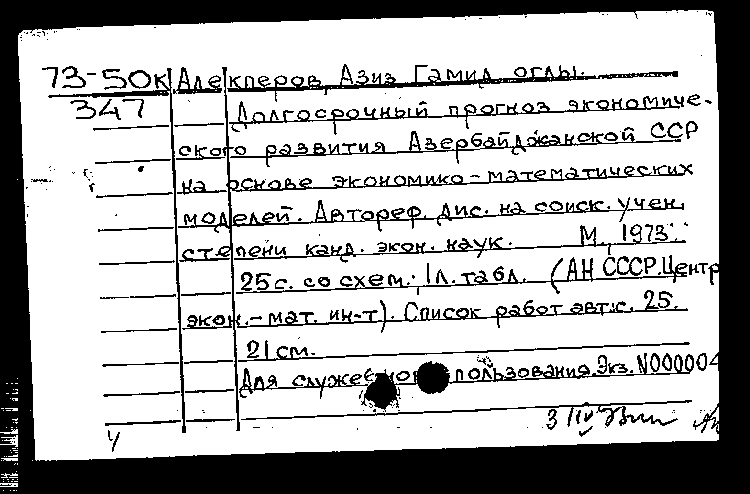 73-50к Алекперов, Азиз Гамид оглы.
347 Долгосрочный прогноз экономиче-
ского развития Азербайджанской ССР
на основе экономико-математических
моделей. Автореф. дис. на соиск. учен.
степени канд. экон. наук. М., 1973.
25 с. со схем.; 1 л. табл. (АН СССР. Центр
экон.-мат. ин-т). Список работ авт.: с. 25.
21 см.
Для служебного пользования. Экз. N000004
3 IV
ч